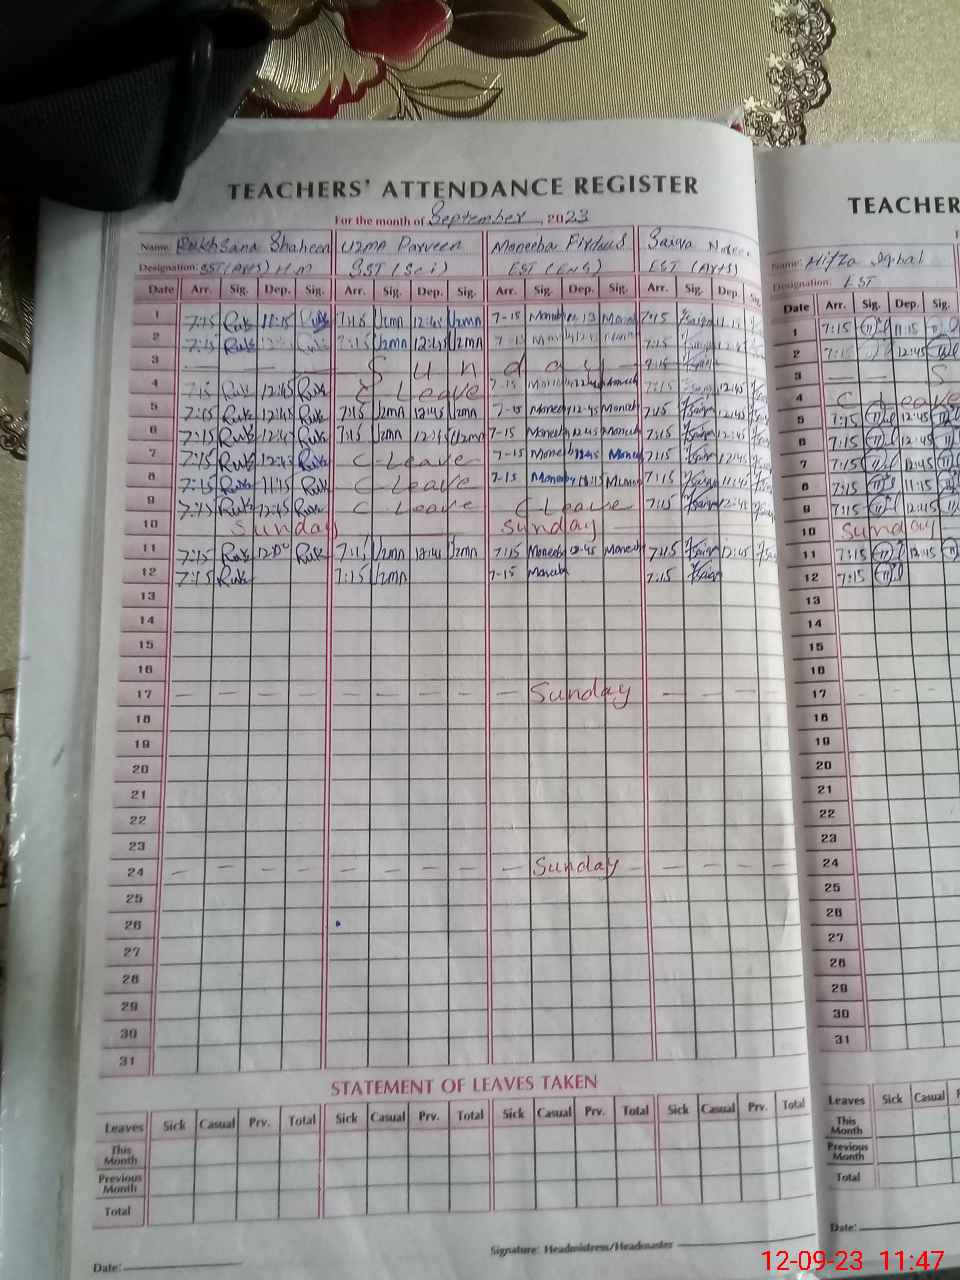 TEACHERS' ATTENDANCE REGISTER
TEACHER
For the month of September, 2023
Name: Rukhsana Shaheen Uzma Parveen Moneeba Firdous Saima
Name: Hifza Iqbal
Designation: SST (Arts) H.M SST (Sci) EST (ENG) EST (Arts)
Designation: EST
Date Arr. Sig. Dep. Sig. Arr. Sig. Dep. Sig. Arr. Sig. Dep. Sig. Arr. Sig. Dep. Sig.
Date Arr. Sig. Dep. Sig.
1 7:15 Ruk 11:15 Ruk 7:15 Uzma 12:45 Uzma 7-15 Moneeb 7:15
1 7:15 11:15
2 7:15 Ruk 7:15 Uzma 12:45 Uzma 7:15
2 7:15 12:45
3 Sunday 7:15
3 S
4 7:15 Ruk 12:45 Ruk C Leave 7-15 7:15 12:45
4 C Leave
5 7:15 Ruk 12:45 Ruk 7:15 Uzma 12:45 Uzma 7-15 Moneeb 12-45 Moneeb 7:15 12:45
5 7:15 12:45
6 7:15 Ruk 12:45 Ruk 7:15 Uzma 12:45 Uzma 7-15 Moneeb 12-45 Moneeb 7:15 12:45
6 7:15 12:45
7 7:15 Ruk 12:45 Ruk C-Leave 7-15 Moneeb 12-45 Moneeb 7:15 12:45
7 7:15 12:45
8 7:15 Ruk 11:15 Ruk C-Leave 7-15 Moneeb 11:15 7:15
8 7:15 11:15
9 7:15 Ruk 12:45 Ruk C Leave C Leave 7:15 12:45
9 7:15 12:45
10 Sunday Sunday
10 Sunday
11 7:15 Ruk Ruk 7:15 Uzma 12:45 Uzma 7:15 Moneeb 12-45 Moneeb 7:15 12:45
11 7:15 12:45
12 7:15 Ruk 7:15 Uzma 7-15 Moneeb 7:15
12 7:15
13
13
14
14
15
15
16
16
17 Sunday
17
18
18
19
19
20
20
21
21
22
22
23
23
24 Sunday
24
25
25
26
26
27
27
28
28
29
29
30
30
31
31
STATEMENT OF LEAVES TAKEN
Leaves Sick Casual Prv. Total Sick Casual Prv. Total Sick Casual Prv. Total Sick Casual Prv. Total
Leaves Sick Casual
This Month
This Month
Previous Month
Previous Month
Total
Total
Signature: Headmistress/Headmaster
Date:
Date:
12-09-23 11:47